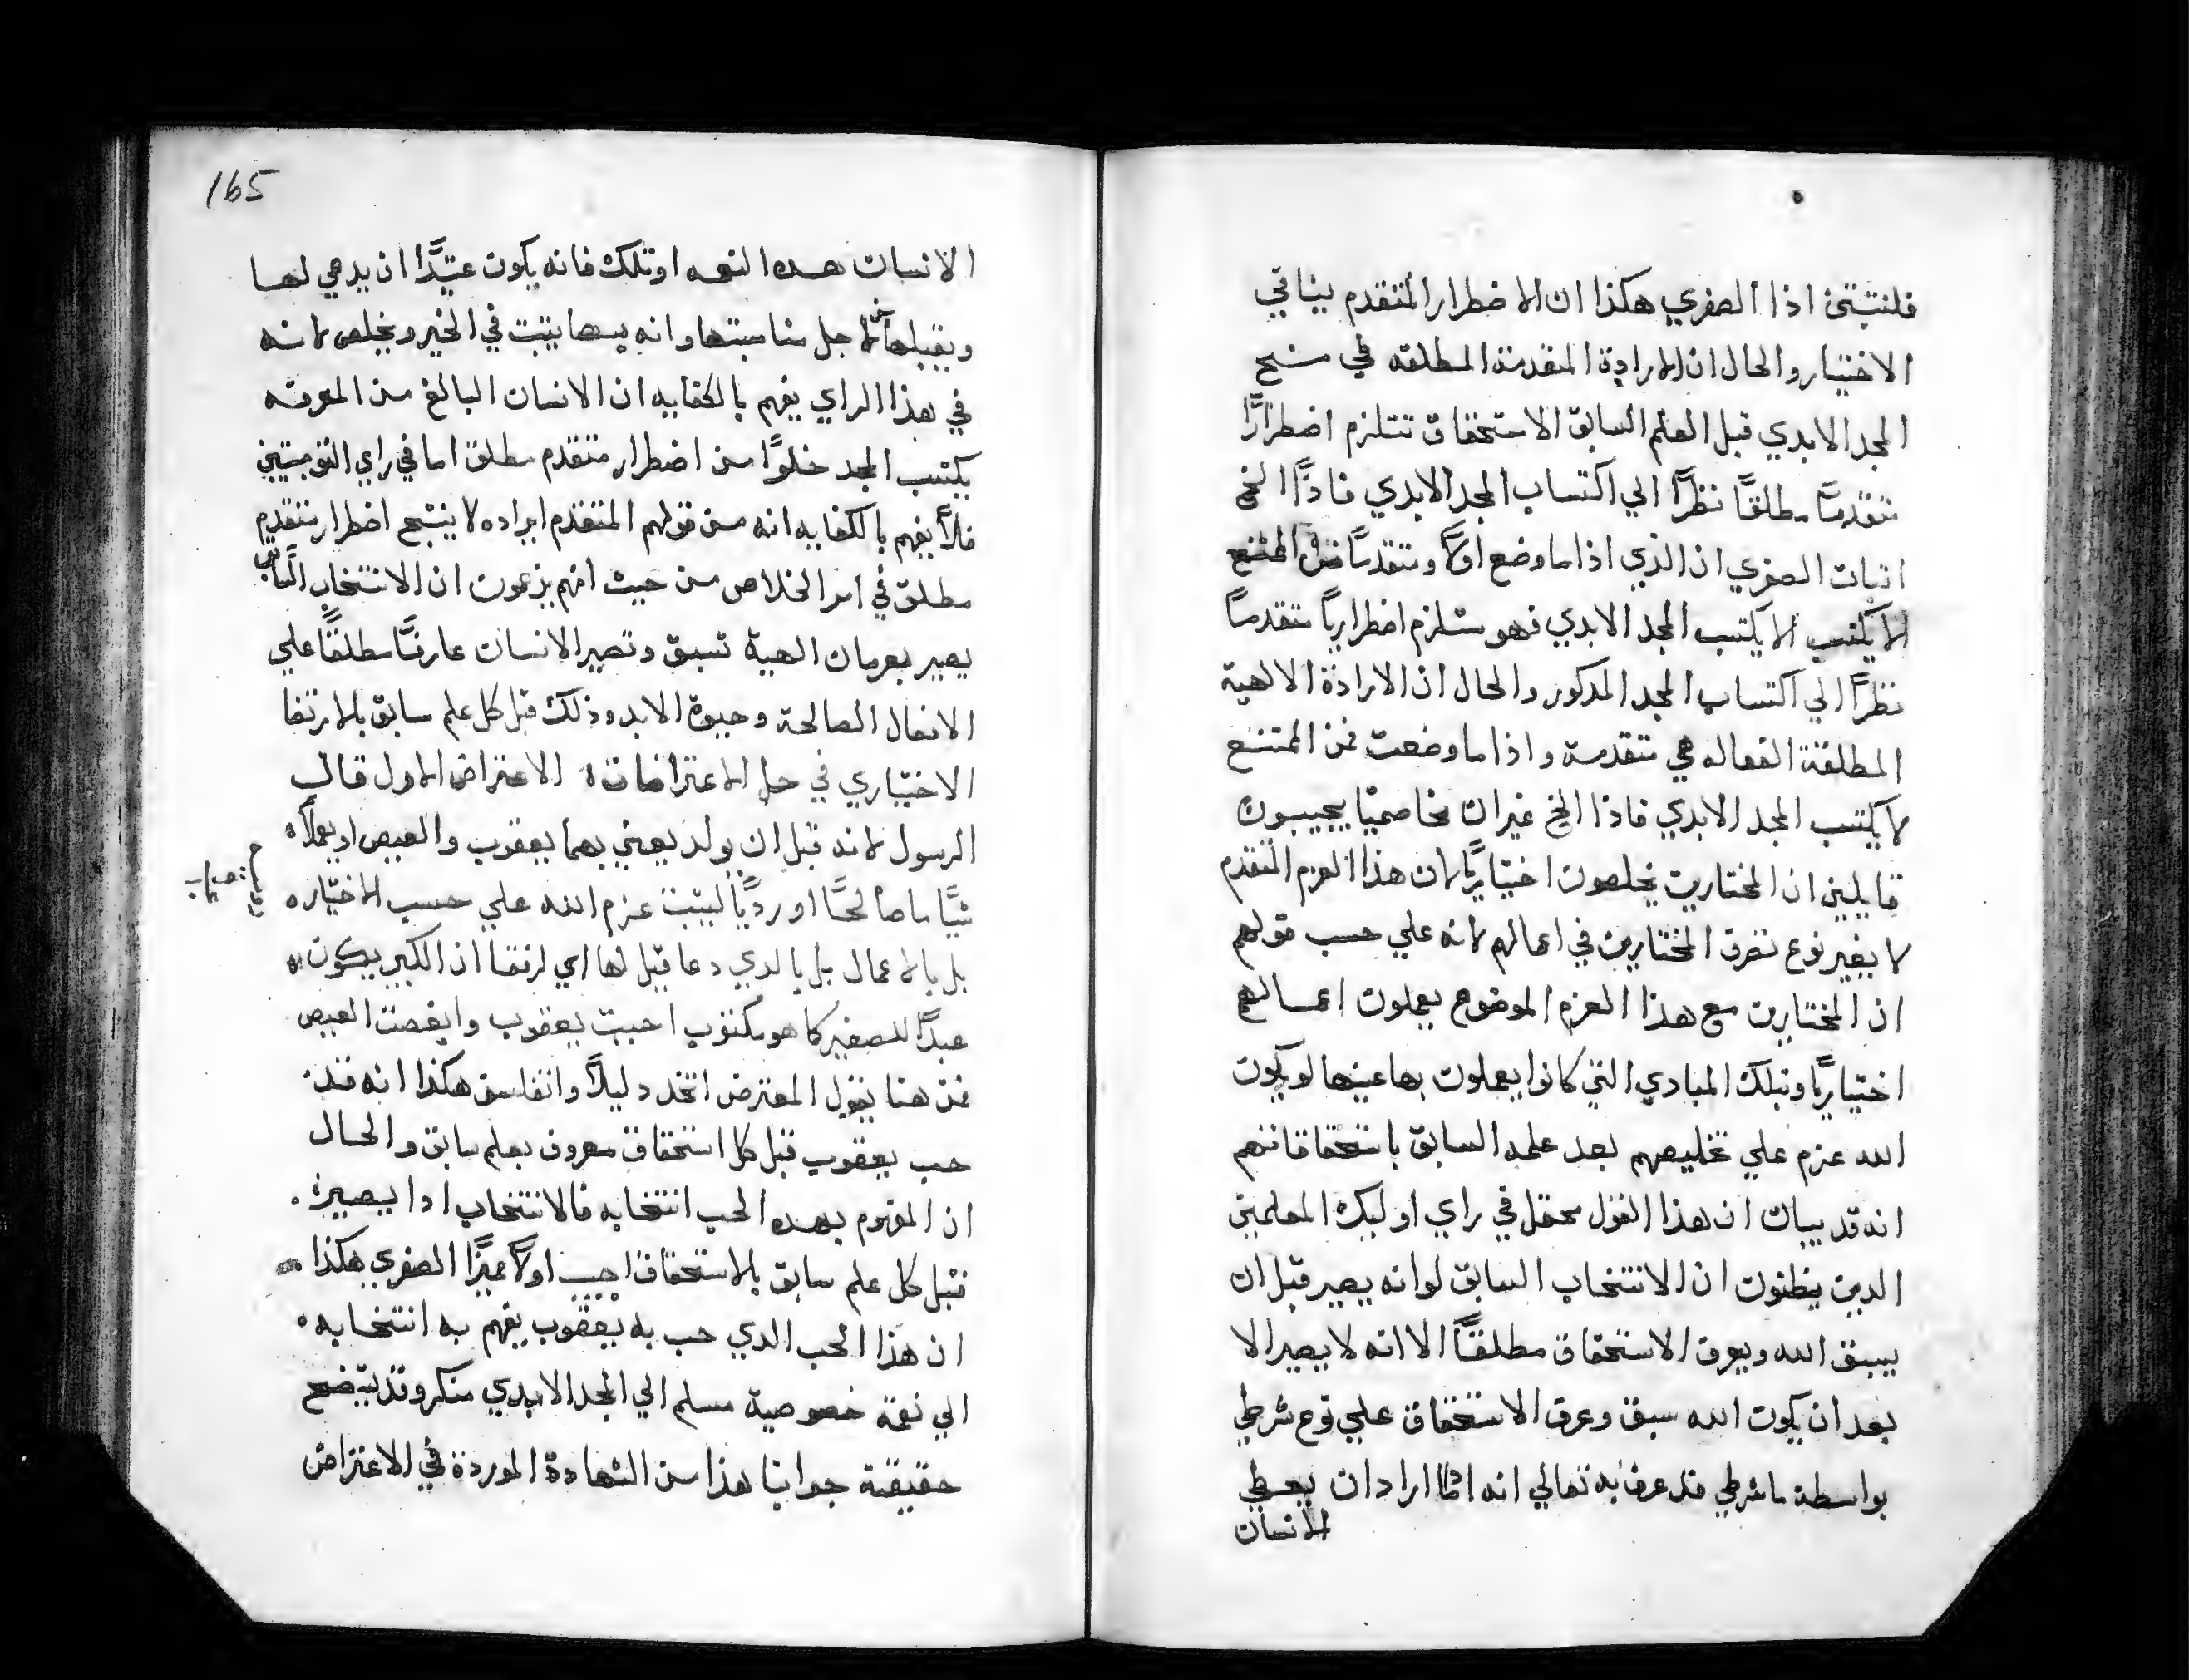 فلنثبتن اذا الصغري هكذا ان الاضطرار المتقدم ينافي
الاختيار والحال ان الارادة المتقدمة المطلقه في منح
المجد الابدي قبل العلم السابق الاستحقاق تتلزم اضطرارًا
متقدمًا مطلقًا نظرًا الي اكتساب المجد الابدي فاذًا الخ
اثبات الصغري ان الذي اذا ما وضع اولًا ومتقدمًا فمن الممتنع
الا يكتسب الا يكتسب المجد الابدي فهو مستلزم اضطراريًا متقدمًا
نظرًا الي اكتساب المجد المذكور والحال ان الارادة الالهية
المطلقة الفعاله هي متقدمة واذا ما وضعت فمن الممتنع
لا يكتسب المجد الابدي فاذا الخ غير ان مخاصمينا يجيبون
قايلين ان المختارين يخلصون اختياريًا لان هذا العزم المتقدم
لا يغير نوع تصرف المختارين في اعمالهم لانه علي حسب قولهم
ان المختارين مع هذا العزم الموضوع يعملون اعمالهم
اختياريًا وبتلك المبادي التي كانوا يعملون بها عينها لو يكون
الله عزم علي تخليصهم بعد علمه السابق باستحقاقاتهم
انه قد يبان ان هذا القول محتمل في راي اوليك المعلمين
الدين يظنون ان الانتخاب السابق لو انه يصير قبل ان
يسبق الله ويعرف الاستحقاق مطلقًا الا انه لا يصير الا
بعد ان يكون الله سبق وعرف الاستحقاق علي نوع شرطي
بواسطة ما شرطي قد عرف به تعالي انه اذا اراد ان يعطي
الانسان
165
الانسان هده النعمه او تلك فانه يكون عتيدًا ان يدعي لها
ويقبلها لاجل مناسبتها وانه بسها يتبت في الخير ويخلص لانه
في هذا الراي يفهم بالكفايه ان الانسان البالغ من المعرفه
يكتسب المجد خلوًا من اضطرار متقدم مطلق اما في راي التوميتيين
فلا يفهم بالكفايه انه من قولهم المتقدم ايراده لا ينتج اضطرار متقدم
مطلق في امر الخلاص من حيث انهم يزعمون ان الانتخاب السابق
يصير بعرمان الهية تسبق وتصير الانسان عارفًا مطلقًا علي
الافعال الصالحة وحيوة الابد وذلك قبل كل علم سابق بالارتضا
الاختياري في حل الاعتراضات الاعتراض الاول قال
الرسول لانه قبل ان يولد يعني بهما يعقوب والعيص او يعملا
شيًا ما صالحًا او رديًا ليثبت عزم الله علي حسب الاختيار
بل بالاعمال بل بالدي دعا قيل لها اي لرفقا ان الكبير يكون
عبدًا للصغير كما هو مكتوب احببت يعقوب وابغضت العيص
فمن هنا يقول المعترض اتخد دليلًا واتفلسف هكذا انه قد
حب يعقوب قبل كل استحقاق معروف بعلم سابق والحال
ان المفهوم بهده الحب انتخابه فالانتخاب ادا يصير
قبل كل علم سابق بالاستحقاق اجيب اولًا مميزًا الصغري هكذا
ان هذا الحب الدي حب به يعقوب يفهم به انتخابه
الي نعمة خصوصية مسلم الي المجد الابدي منكر وقد يتضح
حقيقة جوابنا هذا من الشهادة الموردة في الاعتراض